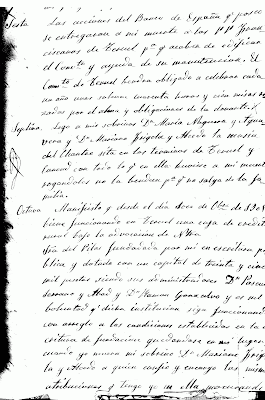 Sexta Las acciones del Banco de España q. poseo
se entregaran a mi muerte a los P.P. Fran
ciscanos de Teruel pª q. acaben de edificar
el Convto y ayuda de su manutencion. El
Convto de Teruel quedara obligado a celebrar cada
un año unas cuarenta horas y cien misas re
zadas por el alma y obligaciones de la donante.
Septima Lego a mis sobrinos Dª Maria Noguera y
y Dn Mariano Frigola y Acedo la masia
del Chantre sita en los terminos de Teruel y
con todo lo q. en ella hubiere a mi muerte
rogandoles no la vendan pª q. no salga de la fa
milia.
Octava Manifiesto q. desde el dia doce de de 1908
viene funcionando en Teruel una caja de credito
bajo la advocacion de Ntra
Sra del Pilar fundada por mi en escritura pu
blica y dotada con un capital de treinta y cinco
mil pesetas siendo sus administradores Dn Pascual
Serrano y Abad y Dn Ramon Gonzalvo y es mi
voluntad q. dicha institucion siga funcionando
con arreglo a las condiciones establecidas en la es
critura de fundacion quedandose en mi lugar
cuando yo muera mi sobrino Dn Mariano Frigo
la y Acedo a quien confio y encargo las mismas
atribuciones q. tengo yo en ella